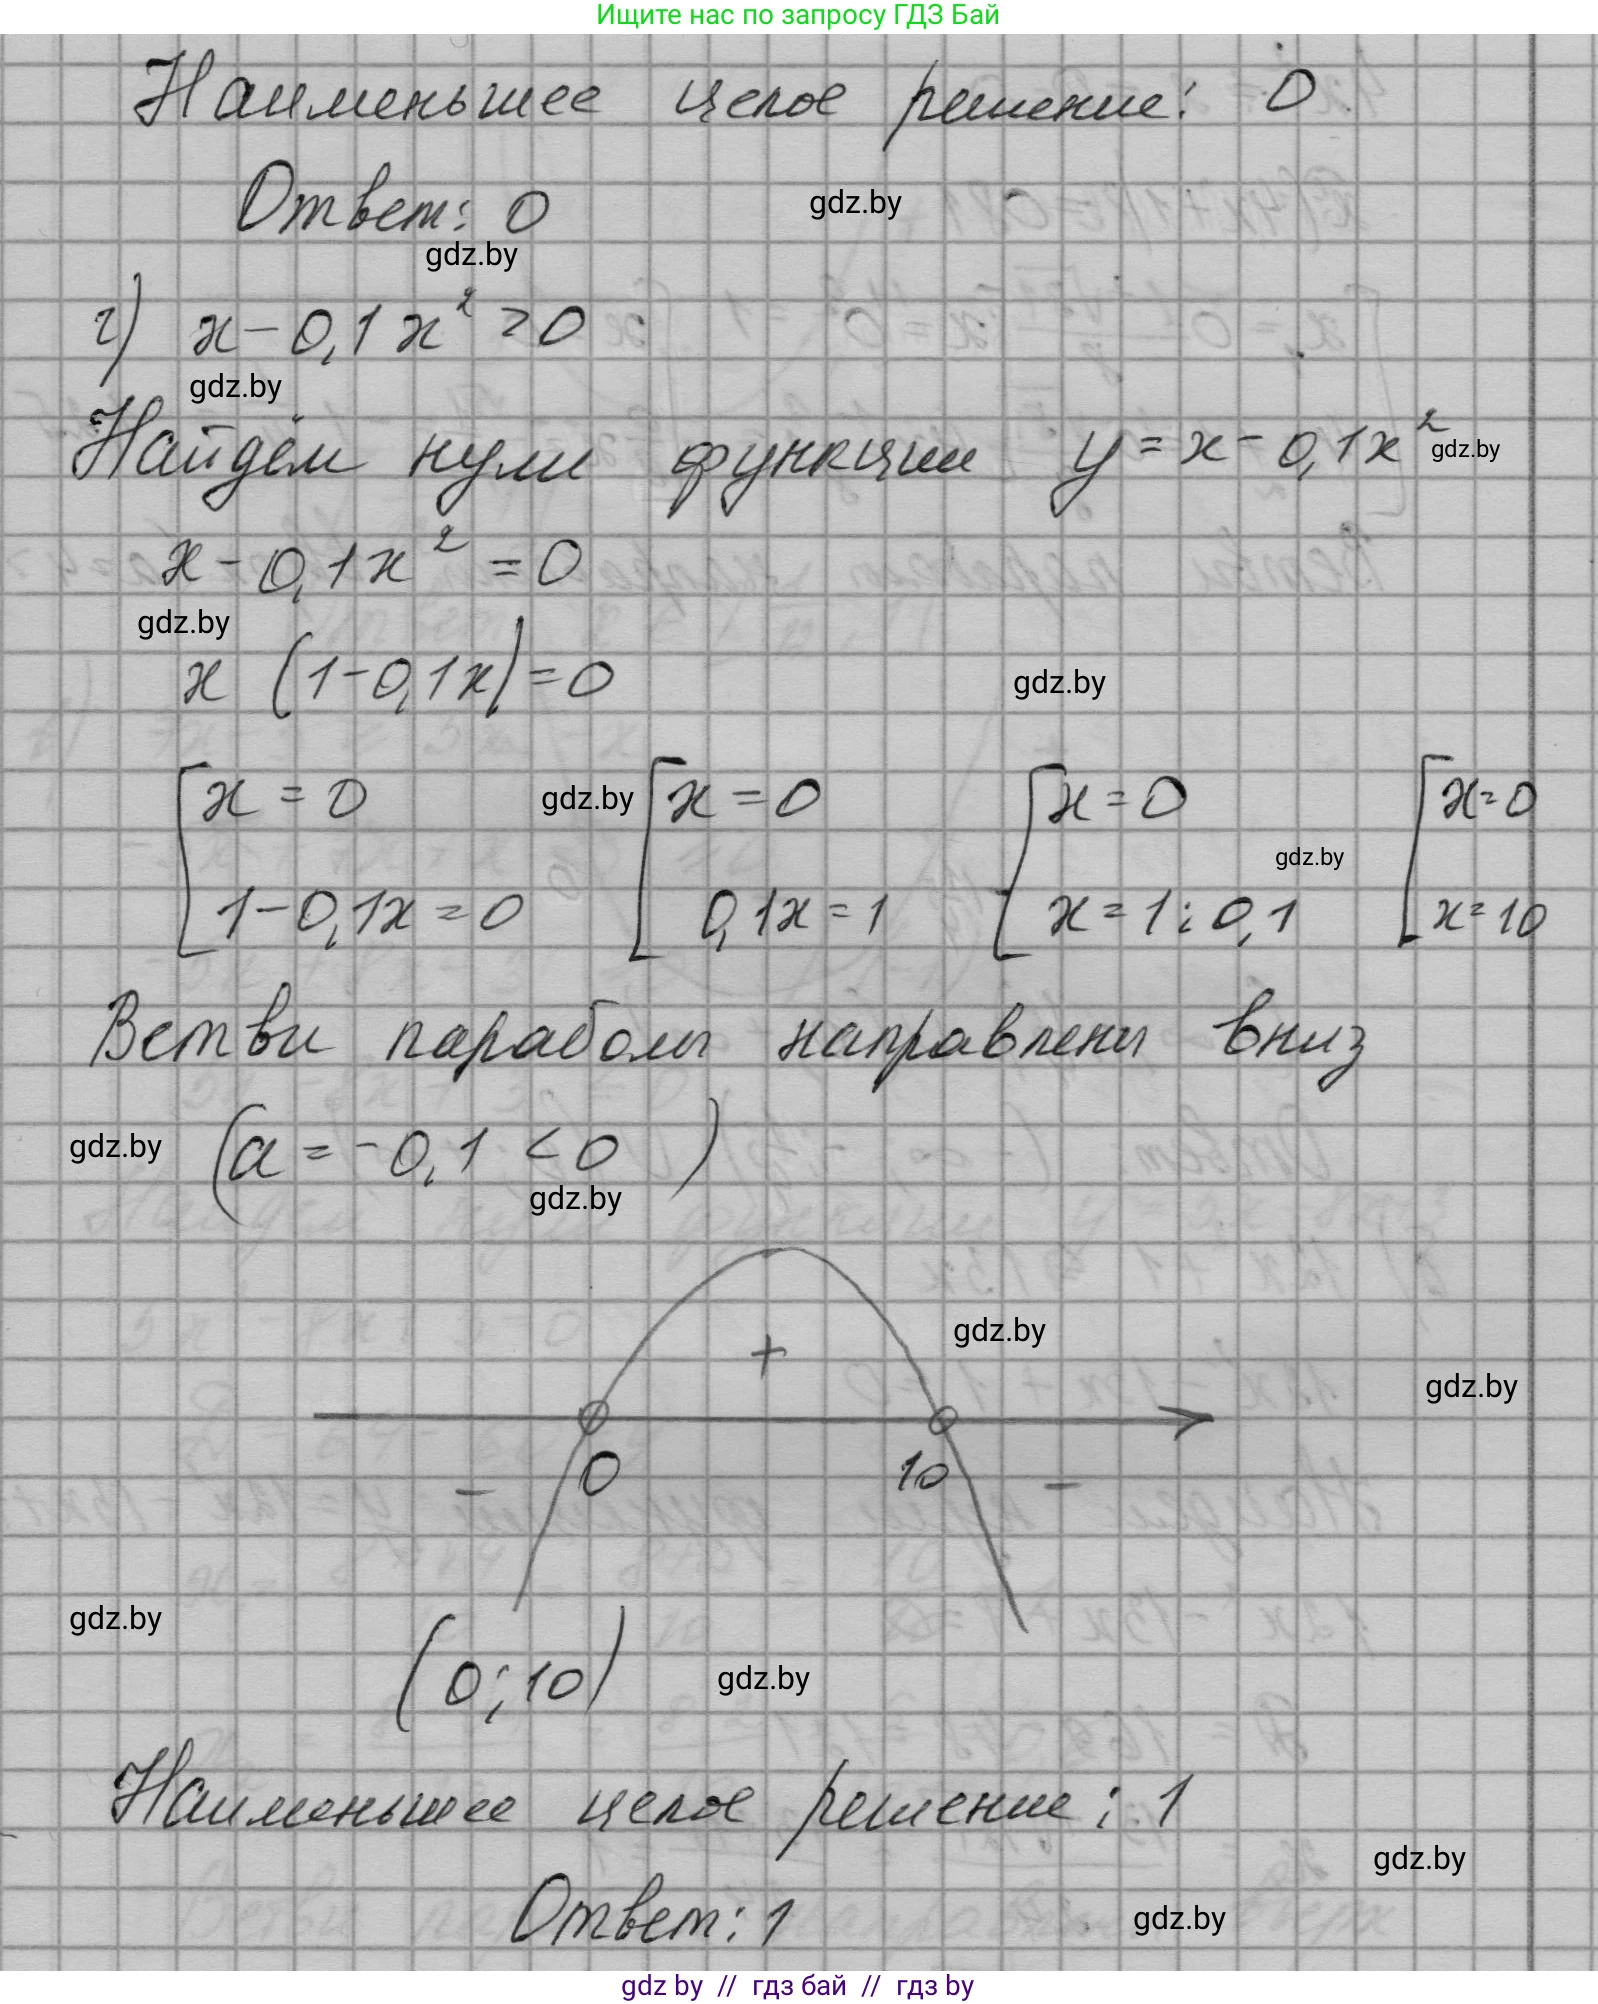 Ищите нас по запросу ГДЗ Бай
Наименьшее целое решение: 0
Ответ: 0
gdz.by
gdz.by
г) x - 0,1x² > 0
gdz.by
Найдём нули функции y = x - 0,1x²
gdz.by
x - 0,1x² = 0
gdz.by
x (1 - 0,1x) = 0
gdz.by
[ x = 0 [ x = 0 [ x = 0 [ x = 0
gdz.by
gdz.by
1 - 0,1x = 0 0,1x = 1 x = 1 : 0,1 x = 10
Ветви параболы направлены вниз
gdz.by
(a = -0,1 < 0 )
gdz.by
gdz.by
+
gdz.by
- 0 10 -
gdz.by
(0; 10)
gdz.by
Наименьшее целое решение: 1
gdz.by
Ответ: 1
gdz.by
gdz by // гдз бай // гдз by